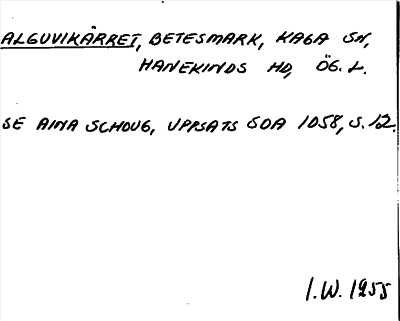 ALGUVIKÄRRET, BETESMARK, KAGA SN,
HANEKINDS HD, ÖG. L.
SE AINA SCHOUG, UPPSATS SOA 1058, S. 12.
I.W. 1955